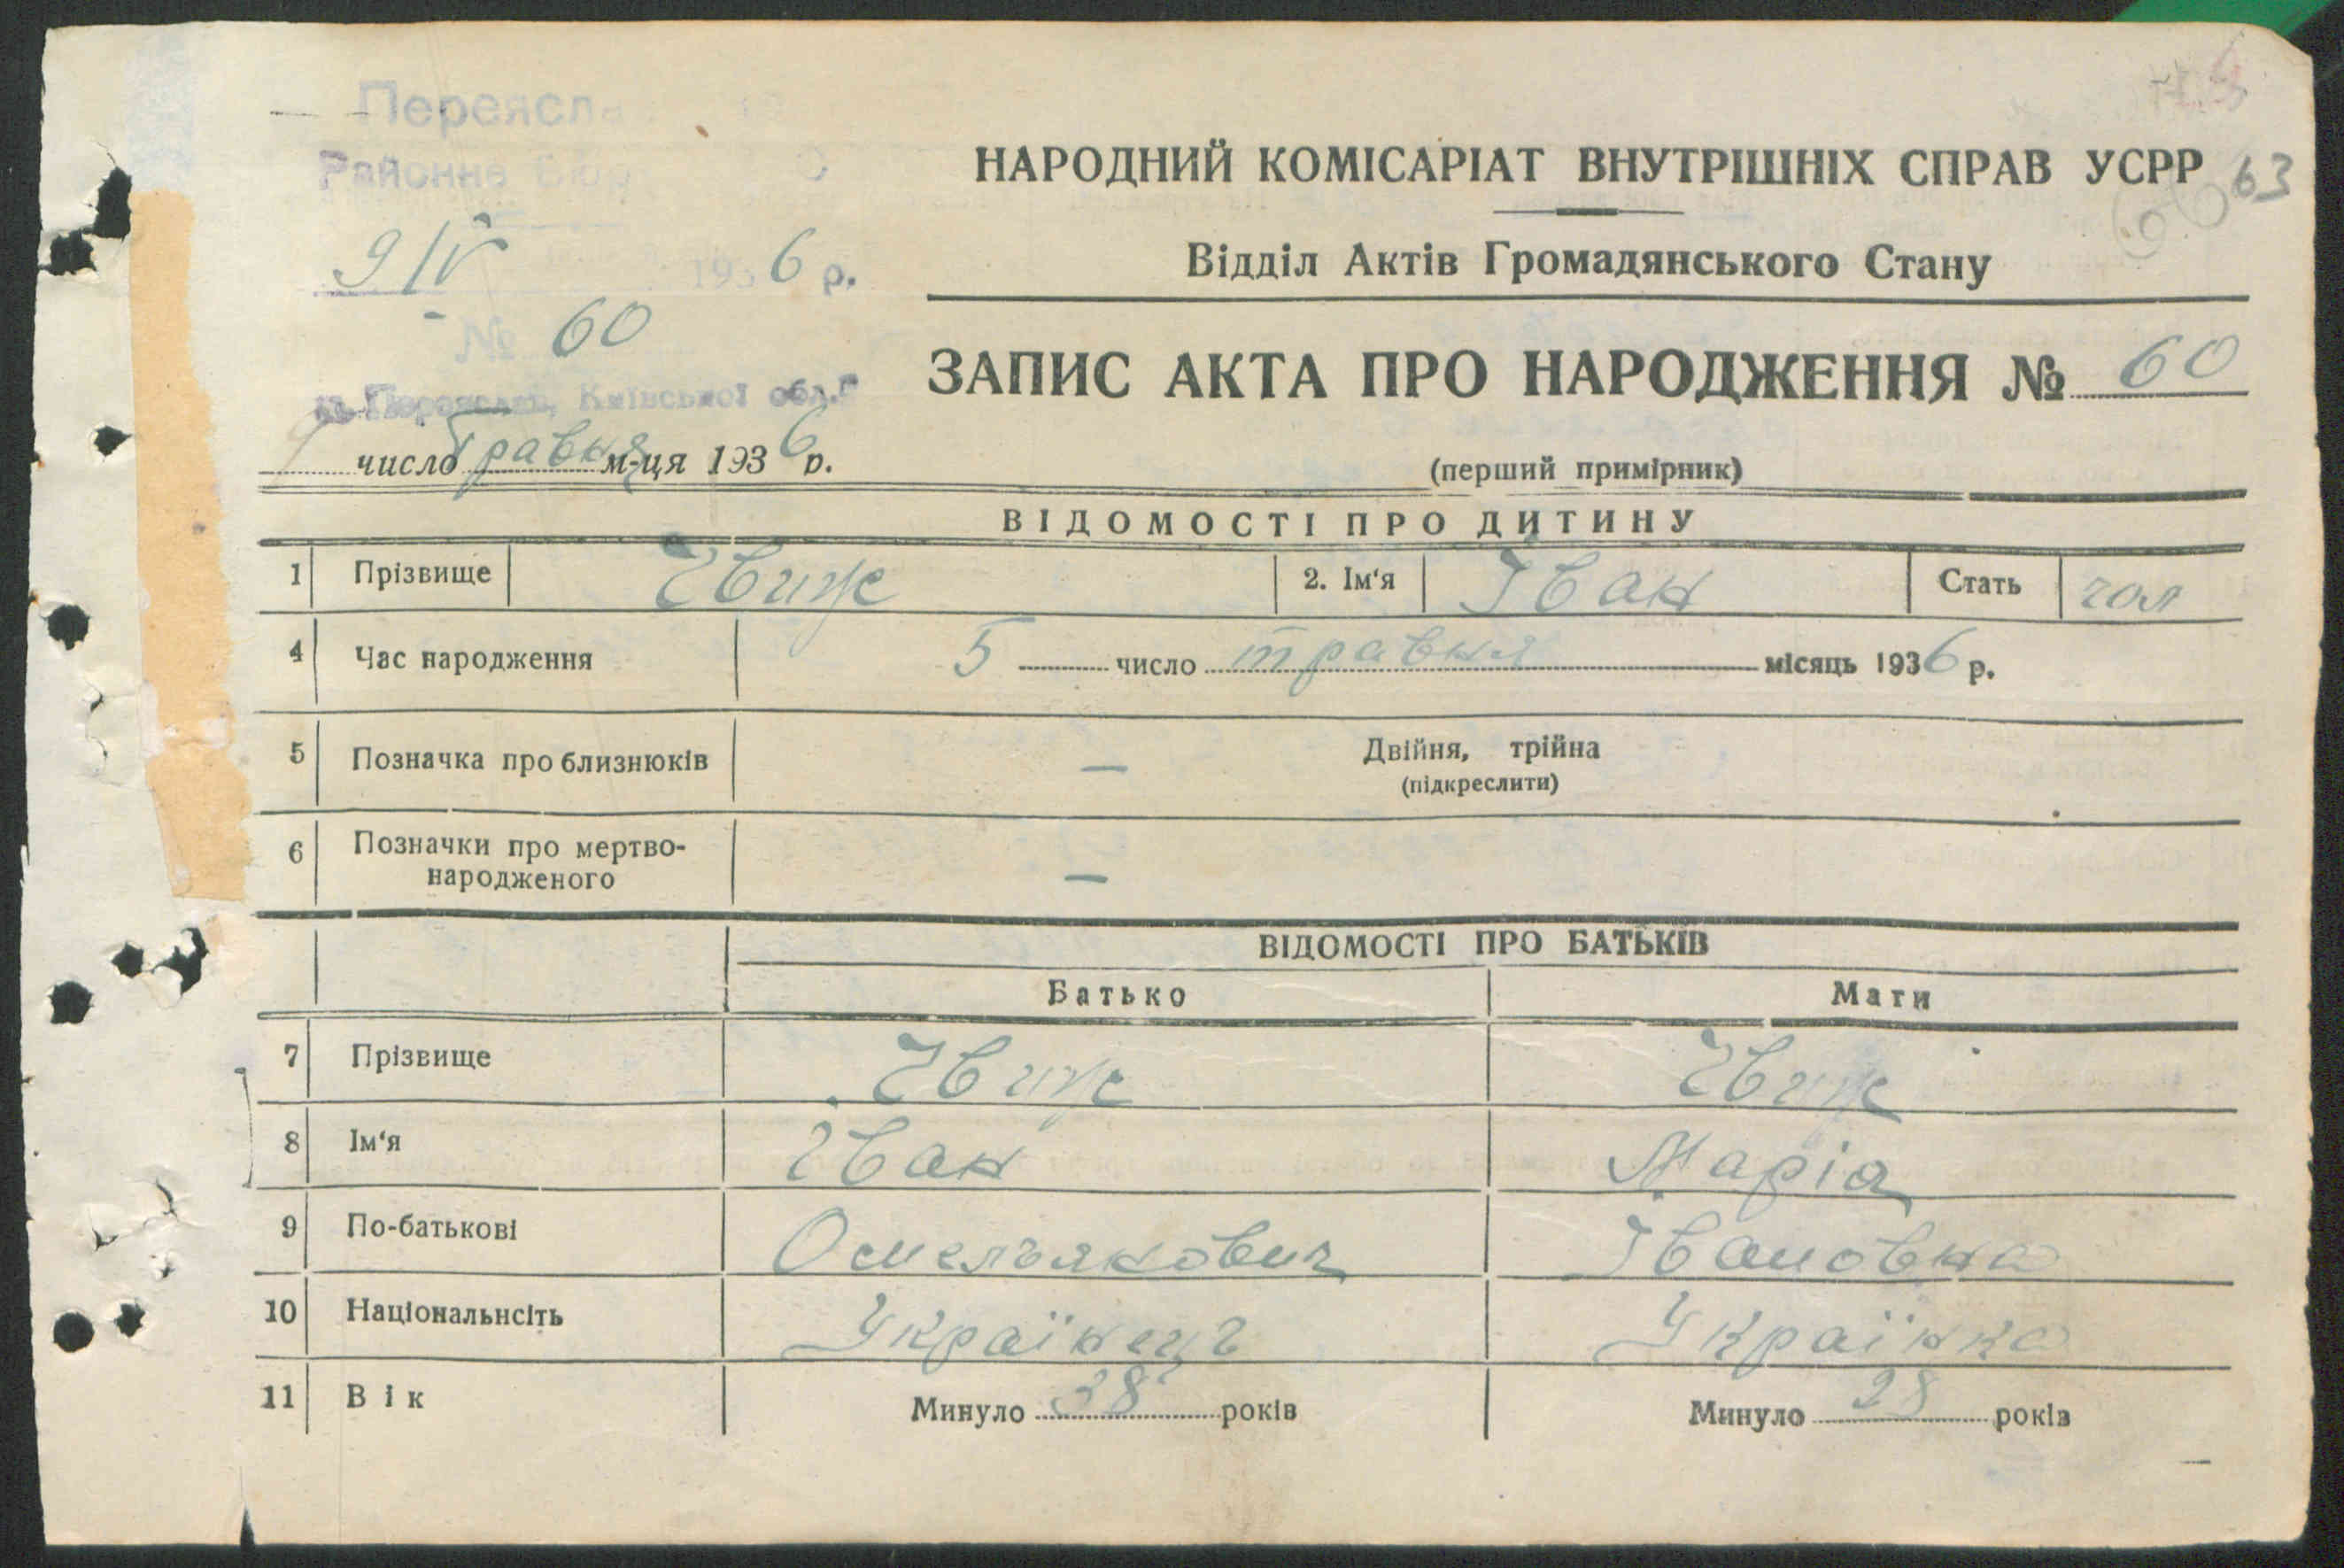 Переясл
Районне Бюр
9/V 1936 р.
№ 60
м. Переяслав, Київської обл.
9 число Травня м-ця 1936 р.
63
66
НАРОДНИЙ КОМІСАРІАТ ВНУТРІШНІХ СПРАВ УСРР
Відділ Актів Громадянського Стану
ЗАПИС АКТА ПРО НАРОДЖЕННЯ № 60
(перший примірник)
ВІДОМОСТІ ПРО ДИТИНУ
1 Прізвище Їжиж 2. Ім'я Іван Стать чол
4 Час народження 5 число травня місяць 1936 р.
5 Позначка про близнюків — Двійня, трійна
(підкреслити)
6 Позначки про мертво-
народженого —
ВІДОМОСТІ ПРО БАТЬКІВ
Батько Мати
7 Прізвище
8 Ім'я Іван Марія
9 По-батькові Омельянович Івановна
10 Національнсіть Українець Українка
11 Вік Минуло 38 років Минуло 28 років